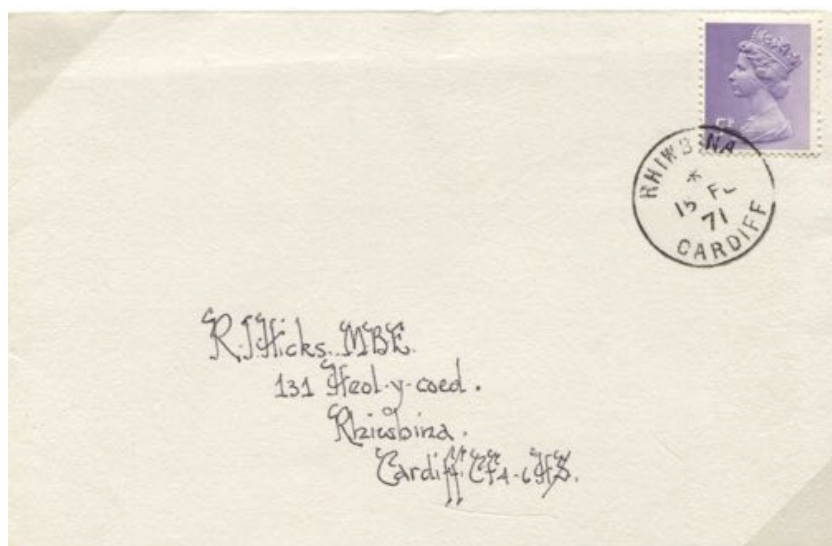 RHIWBINA
*
15 FE
71
CARDIFF
R.J.Hicks. MBE.
131 Heol-y-coed.
Rhiwbina.
Cardiff. CF4-6HS.